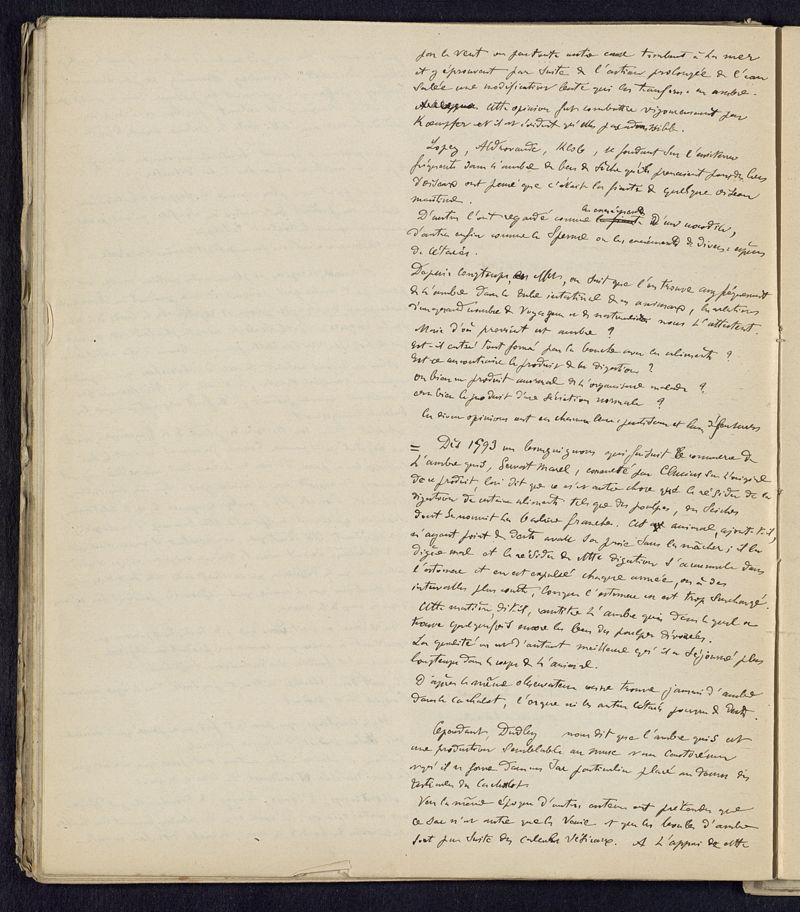 par le vent ou par toute autre cause tombant à la mer
et y éprouvant par suite de l'action prolongée de l'eau
salée une modification lente qui les transforme en ambre.
Cette opinion fut combattue vigoureusement par
Kœmpfer et il est évident qu'elle
Lopez, Aldrovande, Klobe, se fondant sur l'existence
fréquente dans l'ambre de becs de sèche qu'ils prenaient pour des becs
d'oiseaux ont pensé que c'était la fiente de quelque oiseau
maritime.
D'autres l'ont regardé comme les excréments d'un crocodile,
d'autres enfin comme le sperme ou les excréments de diverses espèces
de cétacés.
Depuis longtemps, en effet, on sait que l'on trouve assez fréquemment
de l'ambre dans le tube intestinal de ces animaux, les relations
d'un grand nombre de voyageurs et de naturalistes nous l'attestent.
Mais d'où provient cet ambre ?
est-il entré tout formé par la bouche avec les aliments ?
est ce au contraire le produit de la digestion ?
ou bien un produit anormal de l'organisme malade ?
ou bien le produit d'une sécrétion normale ?
Ces divers opinions ont eu chacune leurs partisans et leurs défenseurs
= Dès 1593 un bourguignon qui faisait le commerce de
l'ambre gris, Servat Marel, consulté par Clusius sur l'origine
de ce produit lui dit que ce n'est autre chose que le résidu de la
digestion de certains aliments tels que des poulpes, des seiches
dont se nourrit la baleine franche. Cet animal, ajoute-t-il,
n'ayant point de dents avale sa proie sans la mâcher ; il la
digère mal et le résidu de cette digestion s'accumule dans
l'estomac et en est expulsé chaque année, ou à des
intervalles plus courts, lorsque l'estomac en est trop surchargé.
Cette matière, dit il, constitue l'ambre gris dans lequel on
trouve quelquefois encore les becs des poulpes dévorés.
La qualité en est d'autant meilleure qu'il a séjourné plus
longtemps dans le corps de l'animal.
D'après le même observateur on ne trouve jamais d'ambre
dans le cachalot, l'orque ni les autres cétacés pourvus de dents.
Cependant, Dudley nous dit que l'ambre gris est
une production semblable au musc et au castoréum
et qu'il se forme dans un sac particulier placé au dessus des
testicules du cachalot
Vers la même époque d'autres auteurs ont prétendu que
ce sac n'est autre que la vessie et que les boules d'ambre
sont par suite des calculs vésicaux. A l'appui de cette